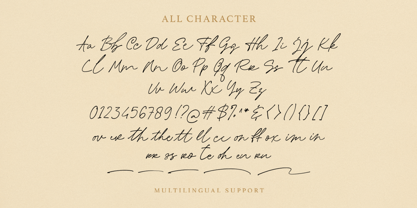 ALL CHARACTER
Aa Bb Cc Dd Ee Ff Gg Hh Ii Jj Kk
Ll Mm Nn Oo Pp Qq Rr Ss Tt Uu
Vv Ww Xx Yy Zz
0123456789!?@#$%"*&<>(){}[]
or us th the tt ll cc on ff ox im in
MULTILINGUAL SUPPORT